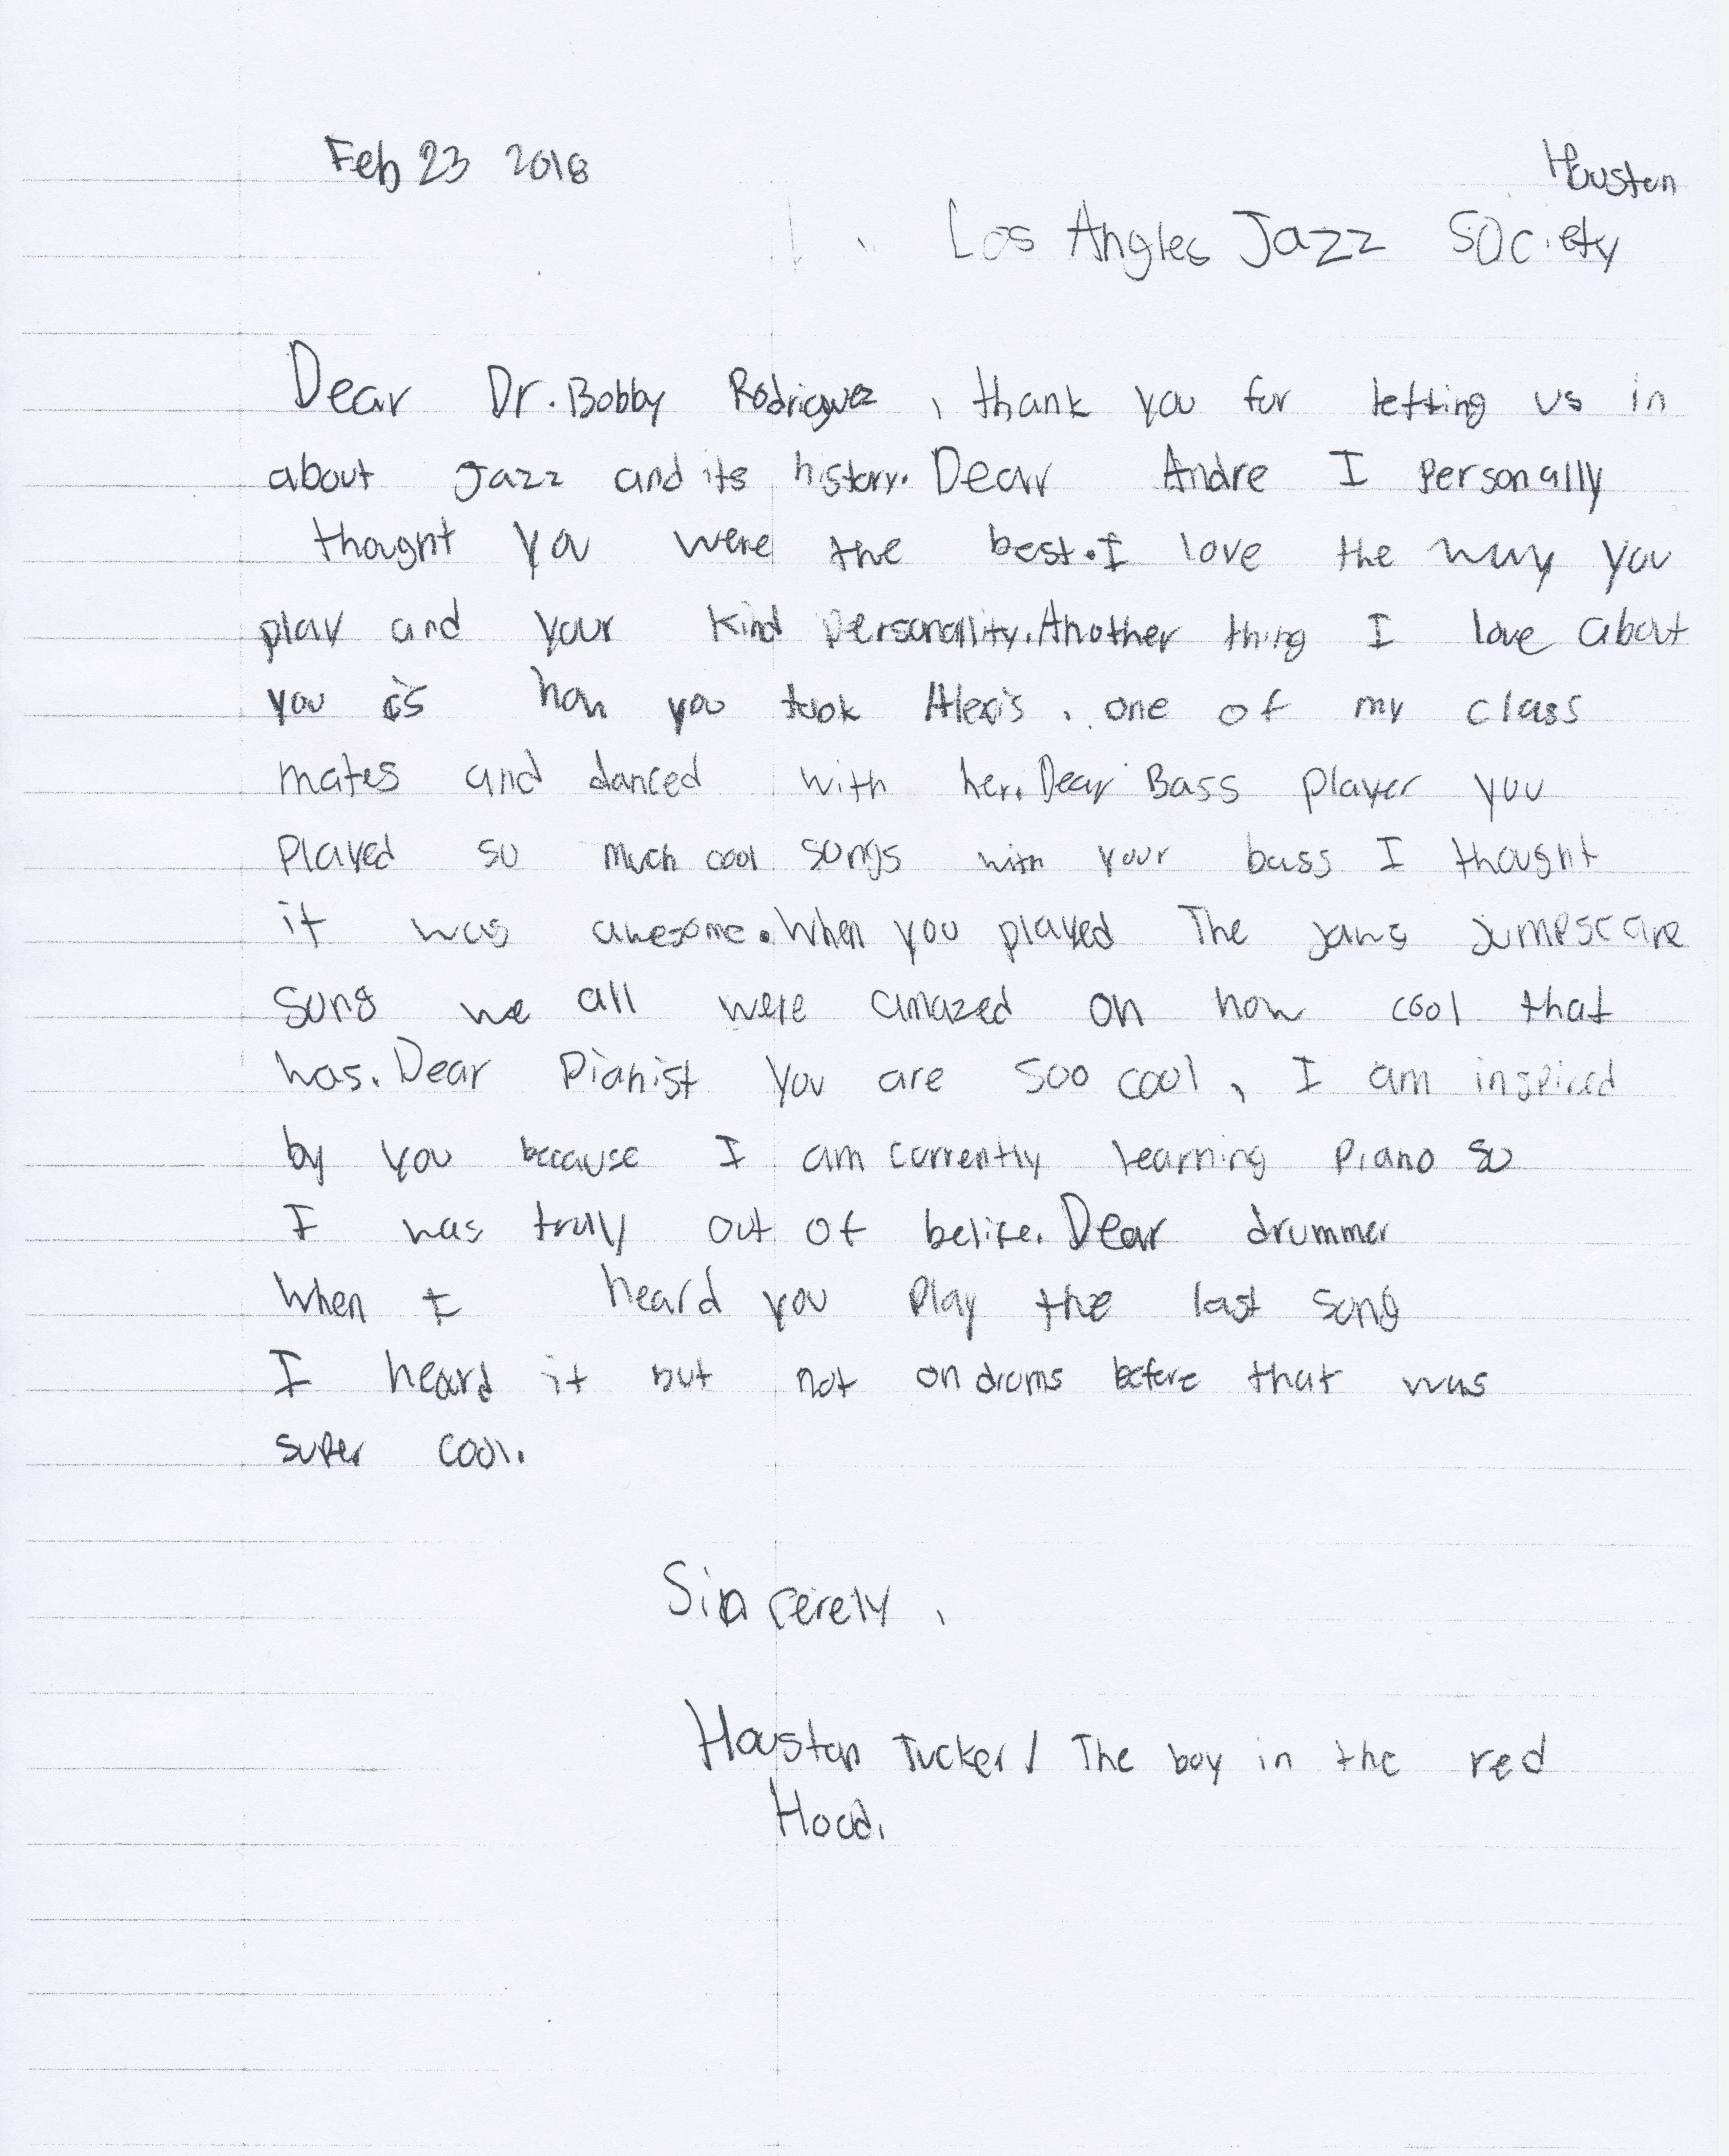 Feb 23 2018
Houston
Los Angles Jazz Society
Dear Dr. Bobby Rodriguez, thank you for letting us in
about Jazz and its history. Dear Andre I personally
thought you were the best. I love the way you
play and your kind personallity. Another thing I love about
you is how you took Alexis, one of my class
mates and danced with her. Dear Bass player you
played so much cool songs with your bass I thought
it was awesome. When you played The jaws jumpscare
song we all were amazed on how cool that
was. Dear Pianist you are soo cool, I am inspired
by you because I am currently learning piano so
I was truly out of belife. Dear drummer
When I heard you play the last song
I heard it but not on drums before that was
super cool.
Sincerely,
Houston Tucker / The boy in the red
Hood.